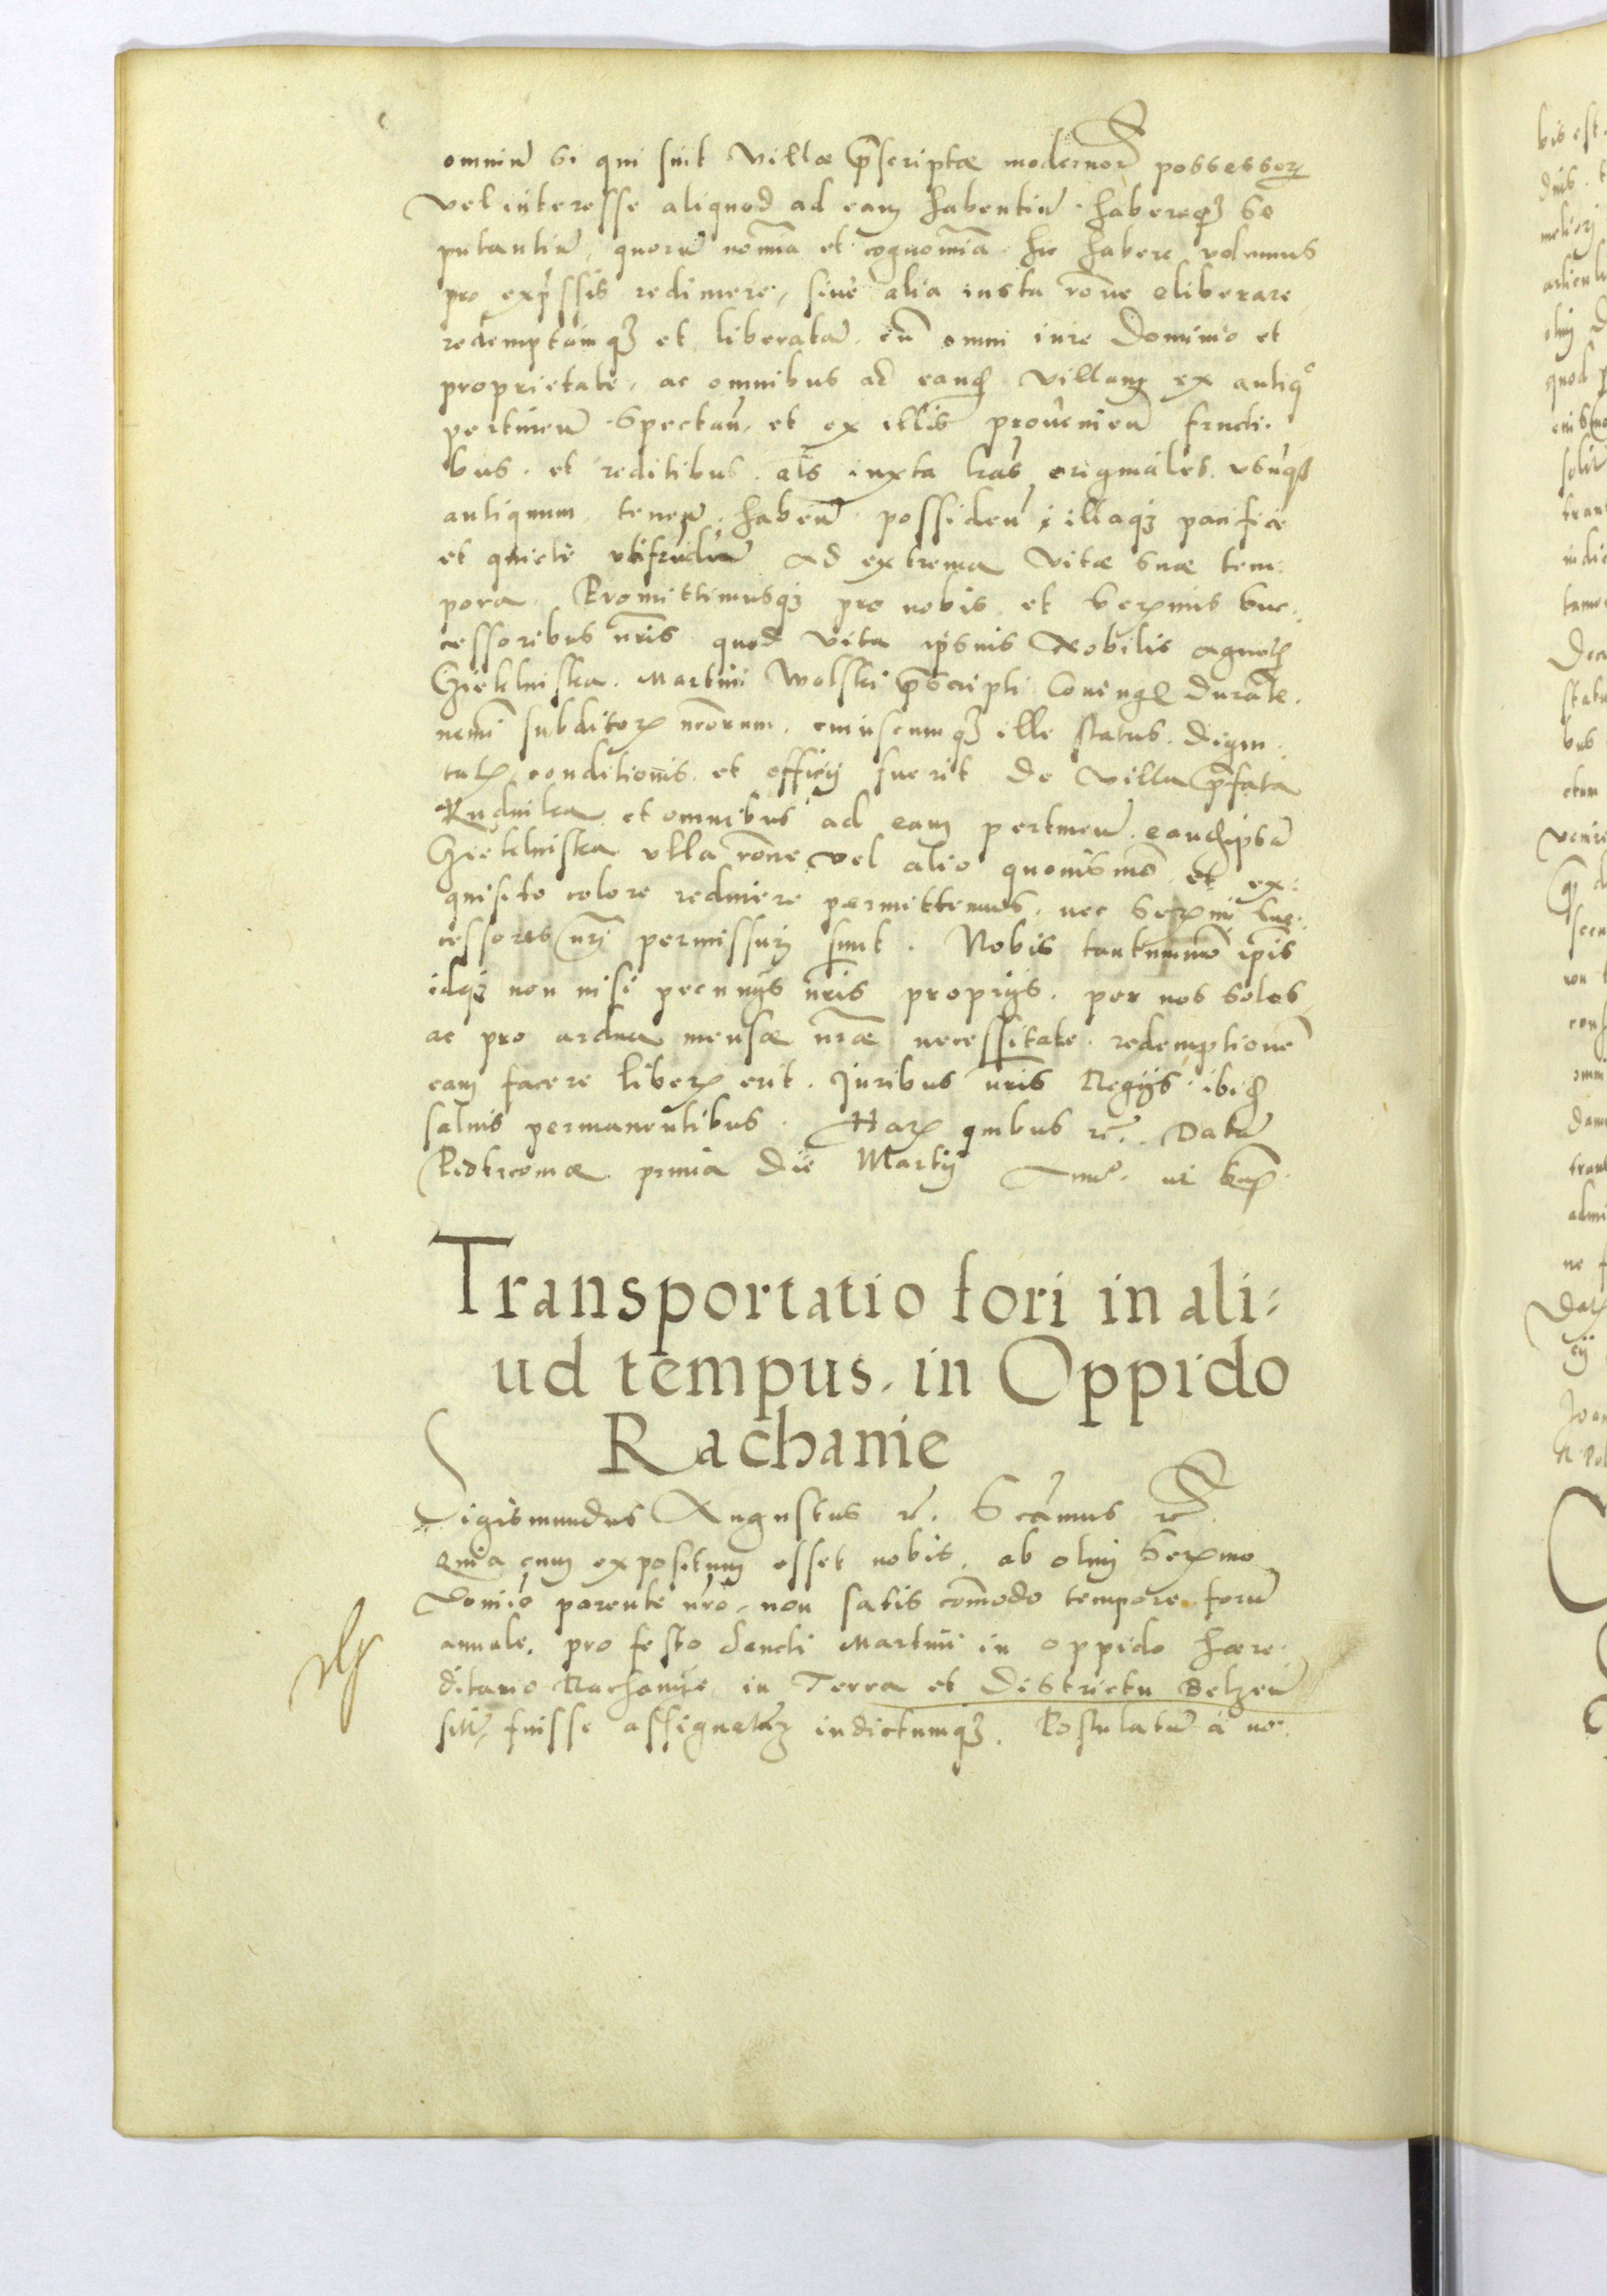 omniũ si qui sint villæ p̃scriptæ modernor̃ possessor̃
vel interesse aliquod ad eam habentiũ. habereqȝ se
putantiũ, quorũ noĩa et cognoĩa hic habere volumus
pro exp̃ssis redimere, siue alia iusta rõne eliberare,
redemptamqȝ et liberatã. cũ omni iure Dominio et
proprietate, ac omnibus ad eand villam ex antiqº
pertineñ. spectañ. et ex illis prouenieñ fructi-
bus. et reditibus. als iuxta l̃ras originales. vsũqȝ
antiquum teneñ. habeñ possideñ, illaqȝ pacifice
et quiete vtifruendã ad extrema vitæ suæ tem-
pora. Promittimusqȝ pro nobis et serᵐis suc-
cessoribus ñris quod vita ipsius Nobilis Agnet
Gielniska. Martini Wolski p̃scripti Coniugẽ durañte.
nemi subditor̃ ñrorum. cuiuscumqȝ ille status. digni-
tat conditionis. et officij fuerit de villa p̃fata
Rudnika et omnibus ad eam pertineñ. eand ipsã
Gielniska vlla rõne vel alio quouismõ et ex-
quisito colore redimere permittemus. nec Serᵐi suc-
cessores ñri permissuri sunt. Nobis tantummõ ip̃is
idqȝ non nisi pecunijs ñris proprijs. per nos solos
ac pro ardua mensæ ñræ necessitate. redemptionẽ
eam facere liber̃ erit. Juribus ñris Regijs ibid
saluis permanentibus. Har̃ quibus rc̃. Datũ
Piotrcouiæ prima die Martij Anº. ut sup̃.
Transportatio fori in ali-
ud tempus. in Oppido
Rachanie
Sigismundus Augustus rc̃. Scãmus rc̃
Quia cum expositum esset nobis, ab olim Serᵐo
Domiõ parente ñro, non satis cõmodo tempore forũ
annale. pro festo Sancti Martini in oppido hære-
ditario Rachanie in Terra et Districtu Belzeñ
sitũ, fuisse assignatũ indictumqȝ. Postulatũ a no-